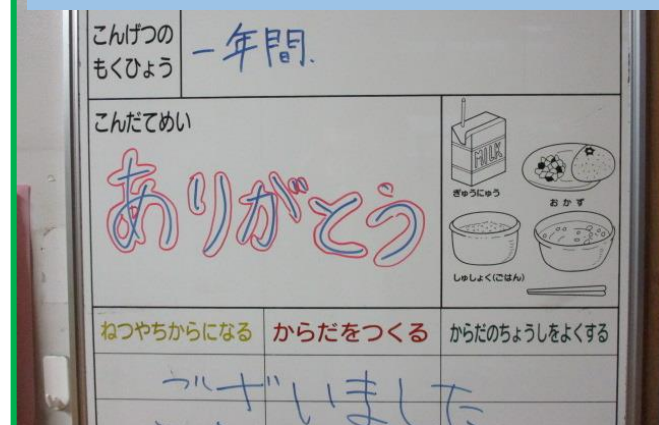 こんげつの
もくひょう
一年間.
こんだてめい
ありがとう
MILK
ぎゅうにゅう
おかず
しゅしょく(ごはん)
ねつやちからになる
からだをつくる
からだのちょうしをよくする
ございました